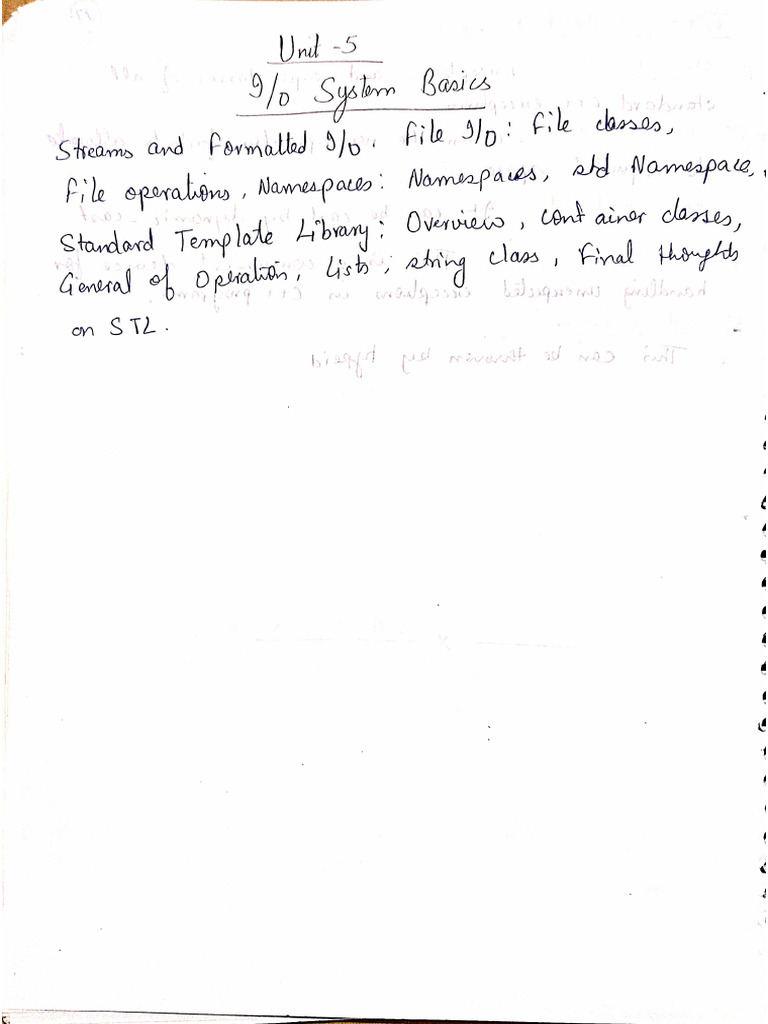 Unit -5
I/O System Basics
Streams and Formatted I/O. File I/O: File classes,
File operations, Namespaces: Namespaces, std Namespace,
Standard Template Library: Overview, Container classes,
General of Operation, Lists, string class, Final thoughts
on STL.